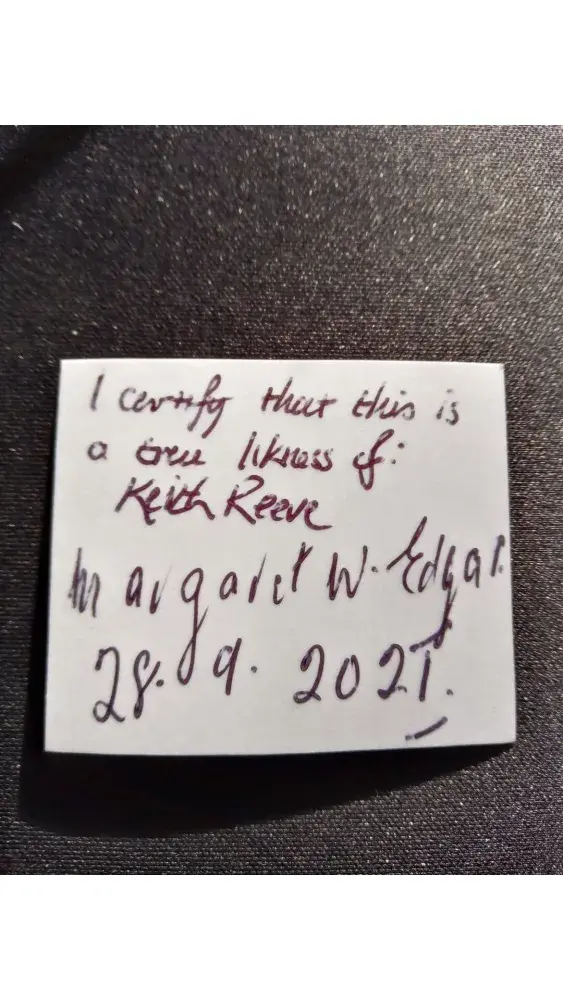 I certify that this is
a true likness of:
Keith Reeve
Margaret W. Edgar.
28. 9. 2021.